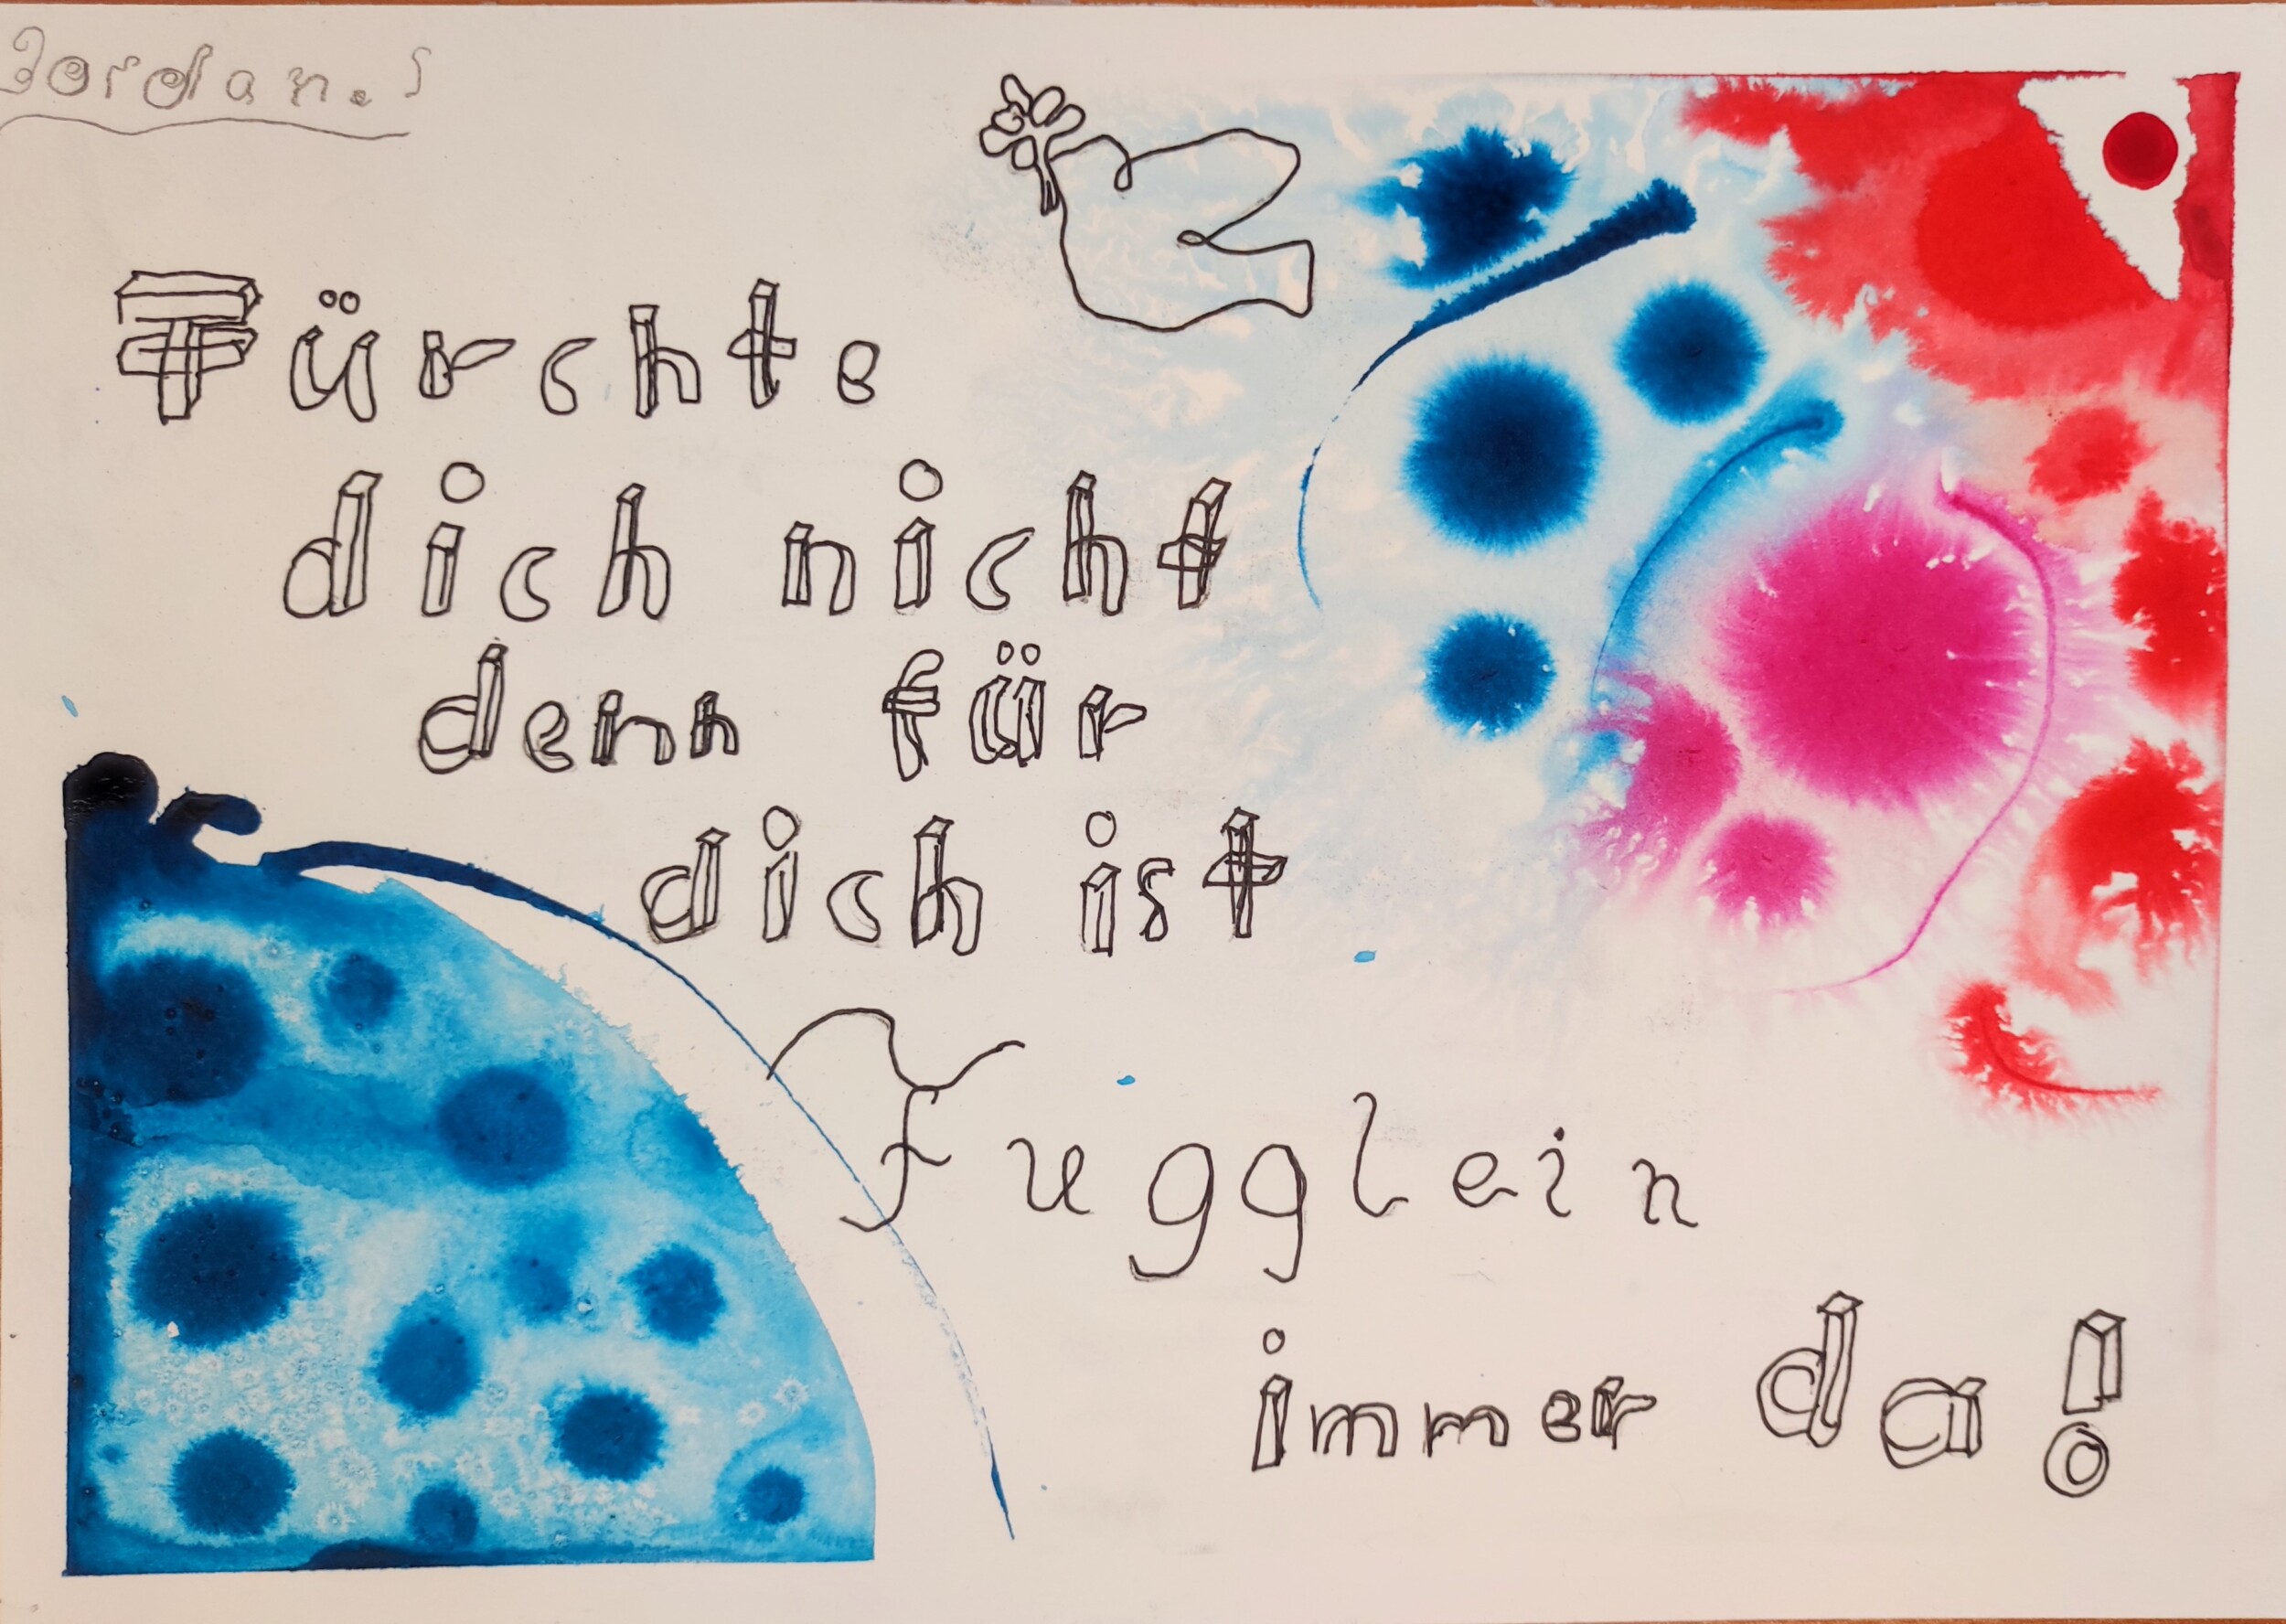 Jordan. S
Fürchte
dich nicht
denn für
dich ist
Fugglein
immer da!